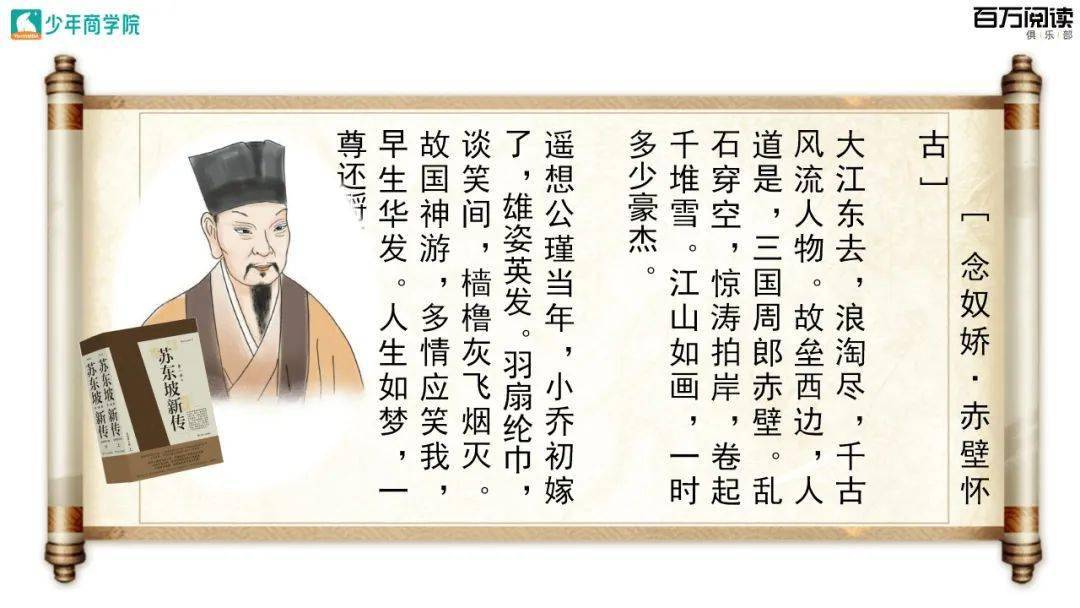 少年商学院
百万阅读
俱乐部
[ 念奴娇·赤壁怀
古]
大江东去，浪淘尽，千古
风流人物。故垒西边，人
道是，三国周郎赤壁。乱
石穿空，惊涛拍岸，卷起
千堆雪。江山如画，一时
多少豪杰。
遥想公瑾当年，小乔初嫁
了，雄姿英发。羽扇纶巾，
谈笑间，樯橹灰飞烟灭。
故国神游，多情应笑我，
早生华发。人生如梦，一
尊还酹
苏东坡新传
苏东坡新传
苏东坡新传